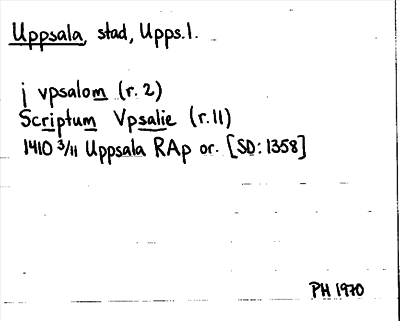 Uppsala, stad, Upps.l.
j vpsalom (r. 2)
Scriptum Vpsalie (r. 11)
1410 3/11 Uppsala RAp or. [SD: 1358]
PH 1970